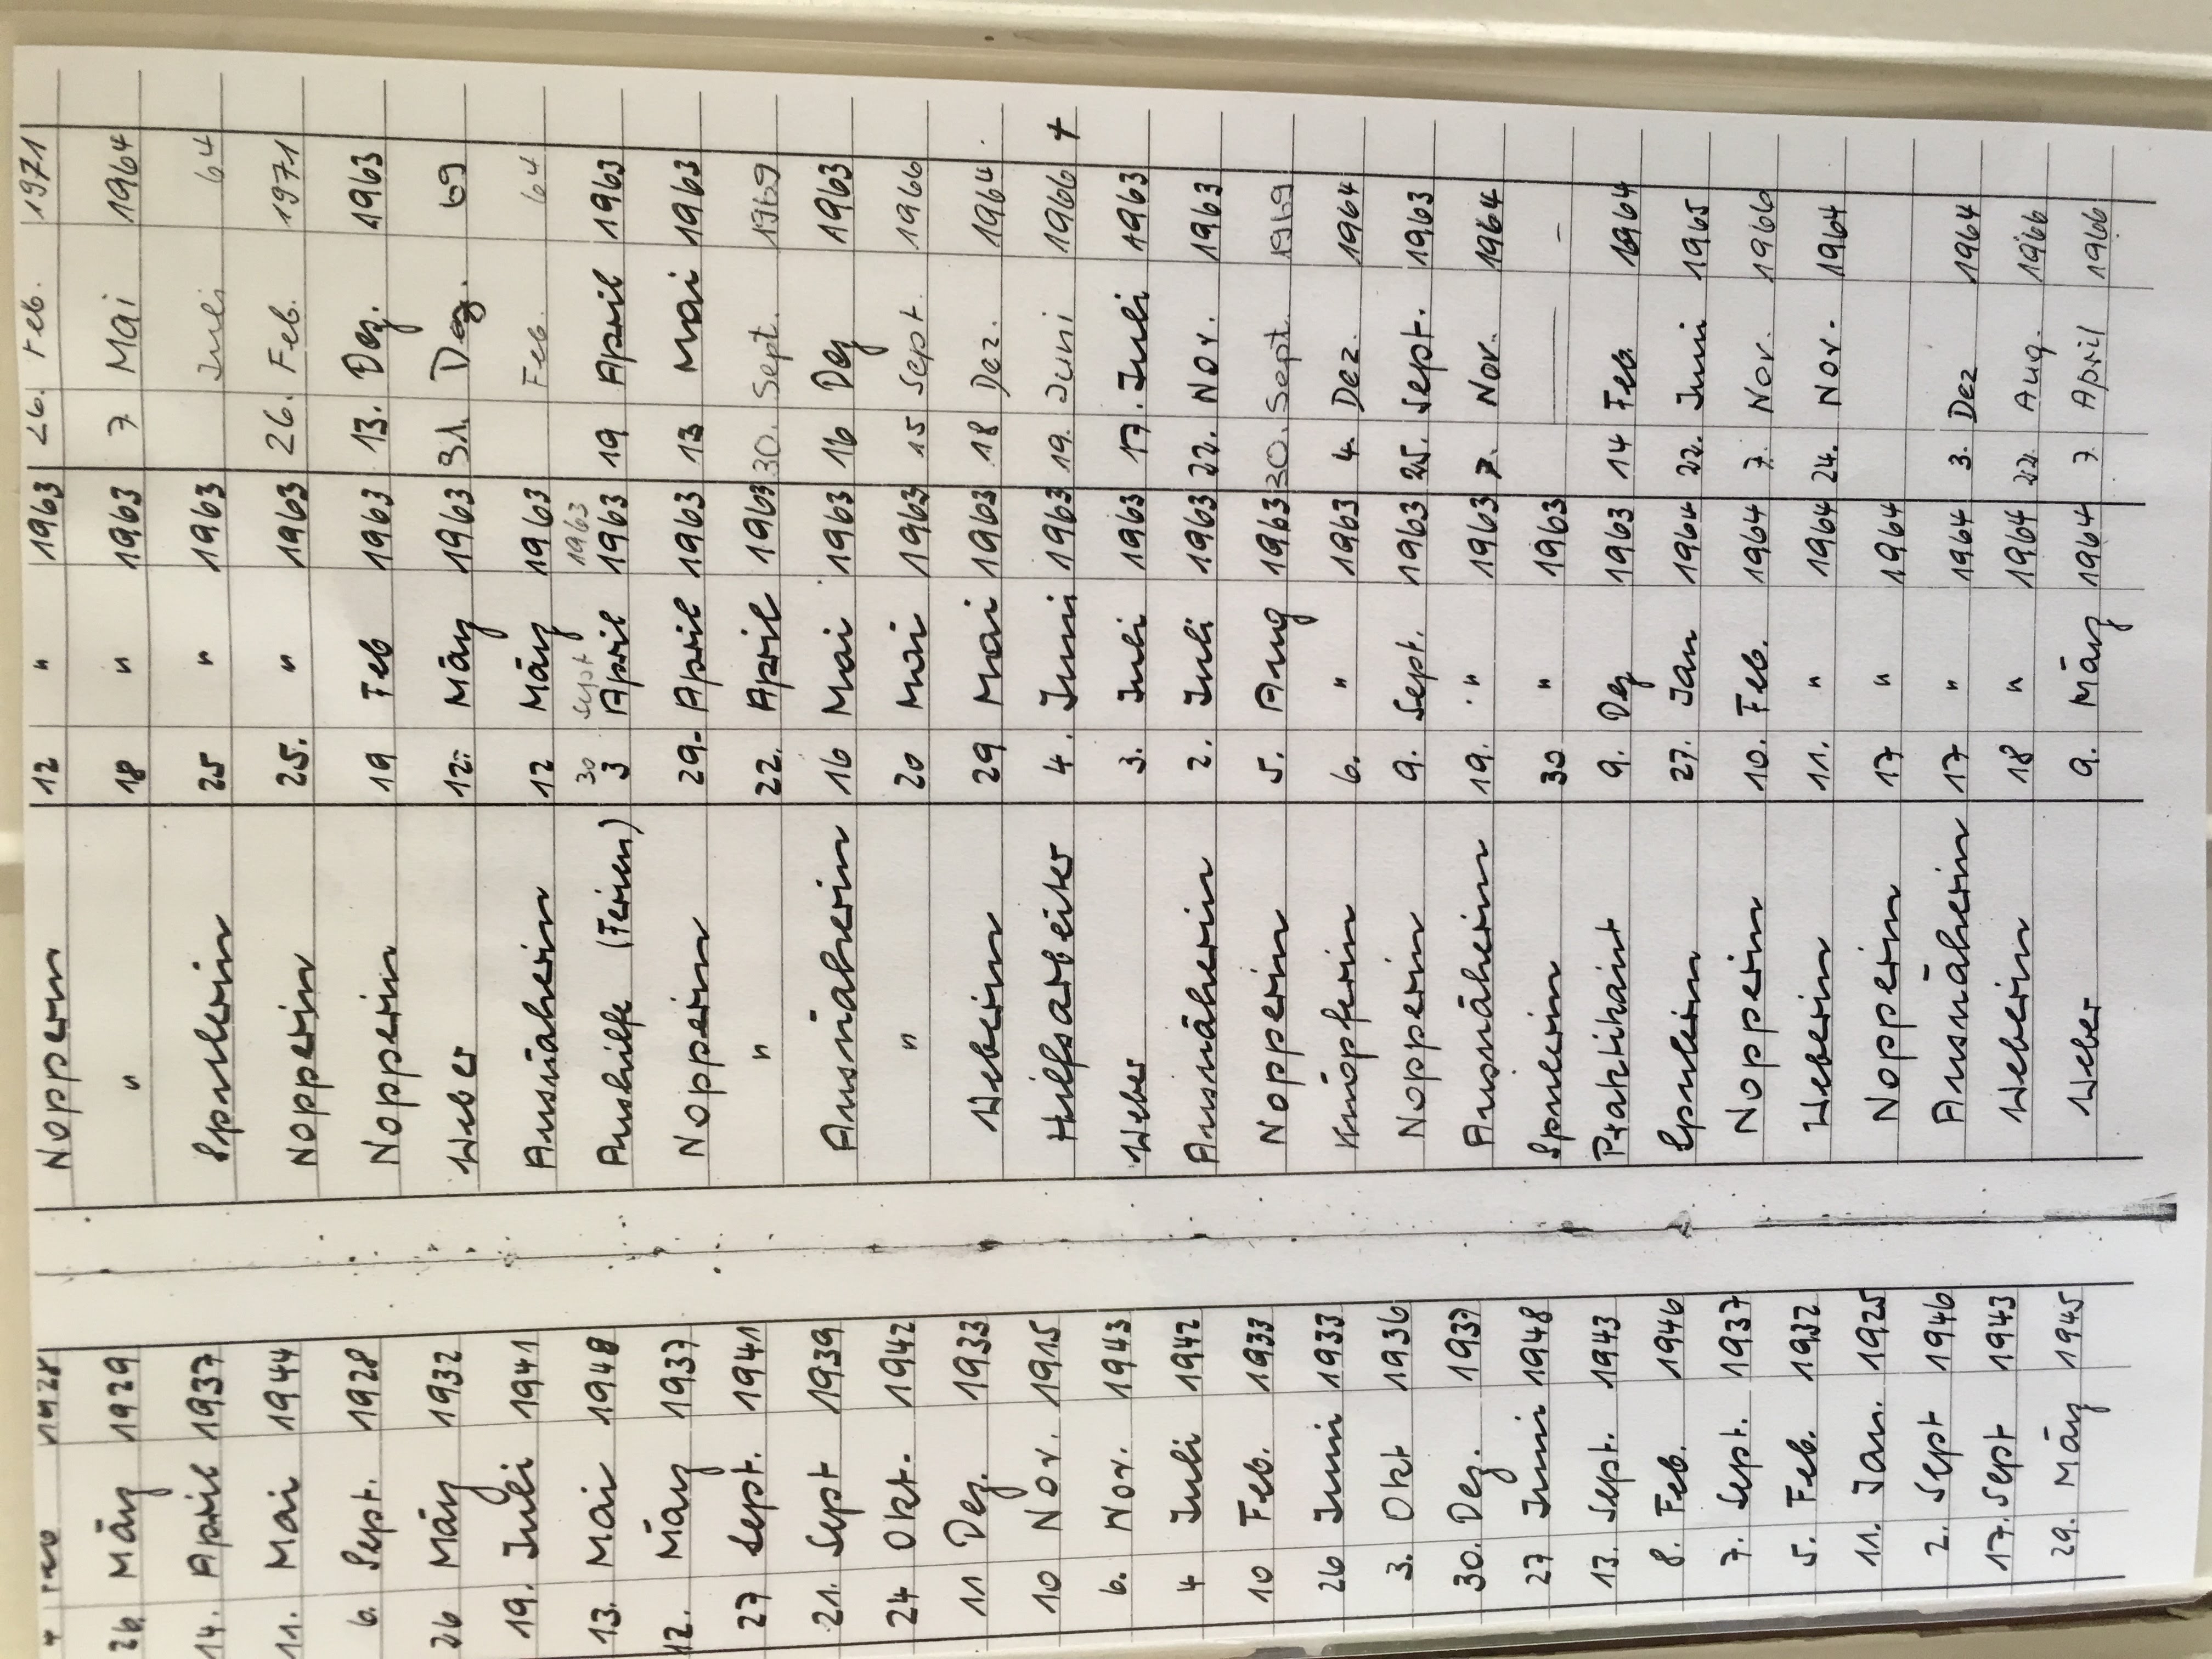 1928 Nopperin 12 " 1963 26. Feb. 1971
26. März 1929 " 18 " 1963 7 Mai 1964
14. April 1937 Spulerin 25 " 1963 Juli 64
11. Mai 1944 Nopperin 25. " 1963 26. Feb. 1971
6. Sept. 1928 Nopperin 19 Feb 1963 13. Dez. 1963
26 März 1932 Weber 12. März 1963 31. Dez. 69
19. Juli 1941 Ausnäherin 12 März 1963 Feb. 64
30 Sept 1963
13. Mai 1948 Aushilfe (Ferien) 3 April 1963 19 April 1963
12. März 1937 Nopperin 29. April 1963 13 Mai 1963
27 Sept. 1941 " 22. April 1963 30. Sept. 1969
21. Sept 1939 Ausnäherin 16 Mai 1963 16 Dez 1963
24 Okt. 1942 " 20 Mai 1963 15 Sept. 1966
11 Dez. 1933 Weberin 29 Mai 1963 18 Dez. 1964
10 Nov. 1915 Hilfsarbeiter 4. Juni 1963 19. Juni 1966 +
6. Nov. 1943 Weber 3. Juli 1963 17. Juli 1963
4 Juli 1942 Ausnäherin 2. Juli 1963 22. Nov. 1963
10 Feb. 1933 Nopperin 5. Aug 1963 30. Sept. 1969
26 Juni 1933 Knüpferin 6. " 1963 4. Dez. 1964
3. Okt 1936 Nopperin 9. Sept. 1963 25. Sept. 1963
30. Dez. 1937 Ausnäherin 19. " 1963 7. Nov. 1964
27 Juni 1948 Spulerin 30 " 1963 — -
13. Sept. 1943 Praktikant 9. Dez 1963 14 Feb. 1964
8. Feb. 1946 Spulerin 27. Jan 1964 22. Juni 1965
7. Sept. 1937 Nopperin 10. Feb. 1964 7. Nov. 1966
5. Feb. 1932 Weberin 11. " 1964 24. Nov. 1964
11. Jan. 1925 Nopperin 17 " 1964
2. Sept 1946 Ausnäherin 17 " 1964 3. Dez 1964
17. Sept 1943 Weberin 18 " 1964 22. Aug. 1966
29. März 1945 Weber 9. März 1964 7. April 1966